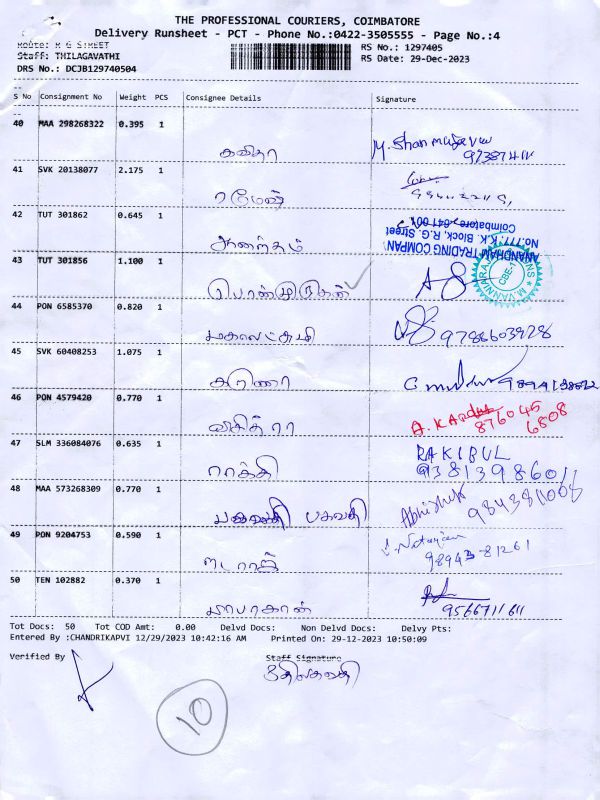 THE PROFESSIONAL COURIERS, COIMBATORE
Delivery Runsheet - PCT - Phone No.:0422-3505555 - Page No.:4
Route: R G STREET
RS No.: 1297405
Staff: THILAGAVATHI
RS Date: 29-Dec-2023
DRS No.: DCJB129740504
S No Consignment No Weight PCS Consignee Details Signature
40 MAA 298268322 0.395 1
கவிதா
41 SVK 20138077 2.175 1
ரமேஷ்
42 TUT 301862 0.645 1
ஆனந்தம்
ANANDHAM TRADING COMPANY
No.777, K.K. Block, R.G. Street
Coimbatore-641 001
43 TUT 301856 1.100 1
பொன்முருகன்
44 PON 6585370 0.820 1
மகாலட்சுமி 9786603928
45 SVK 60408253 1.075 1
46 PON 4579420 0.770 1
சித்ரா 876045
6808
47 SLM 336084076 0.635 1
RAKIBUL
ராக்கி
48 MAA 573268309 0.770 1
பகவதி Abhishek 9843811008
49 PON 9204753 0.590 1
நடராஜ் Natarajan
98943-81261
50 TEN 102882 0.370 1
9566711611
Tot Docs: 50 Tot COD Amt: 0.00 Delvd Docs: Non Delvd Docs: Delvy Pts:
Entered By :CHANDRIKAPVI 12/29/2023 10:42:16 AM Printed On: 29-12-2023 10:50:09
Verified By Staff Signature
திலகவதி
10